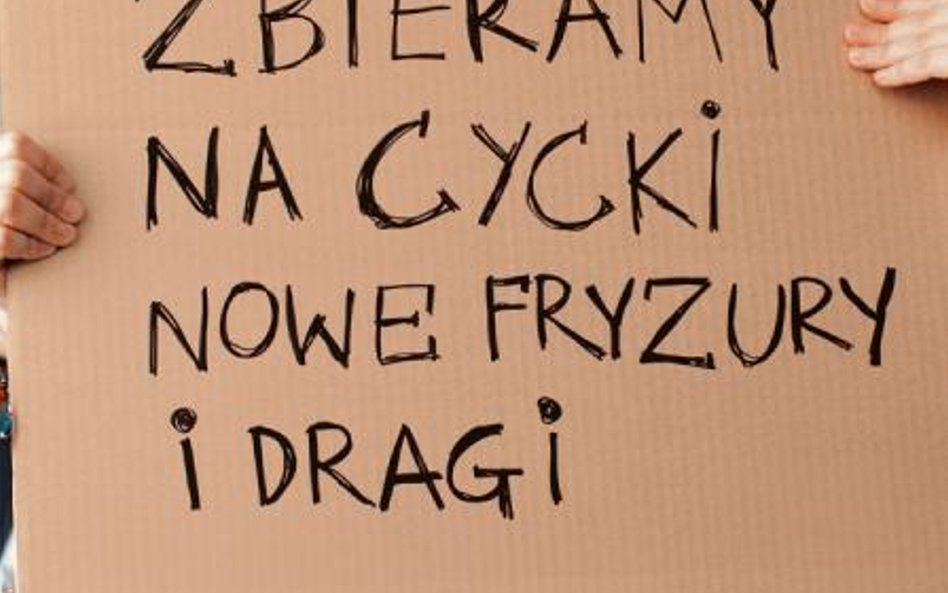 ZBIERAMY
NA CYCKi
NOWE FRYZURY
i DRAGi